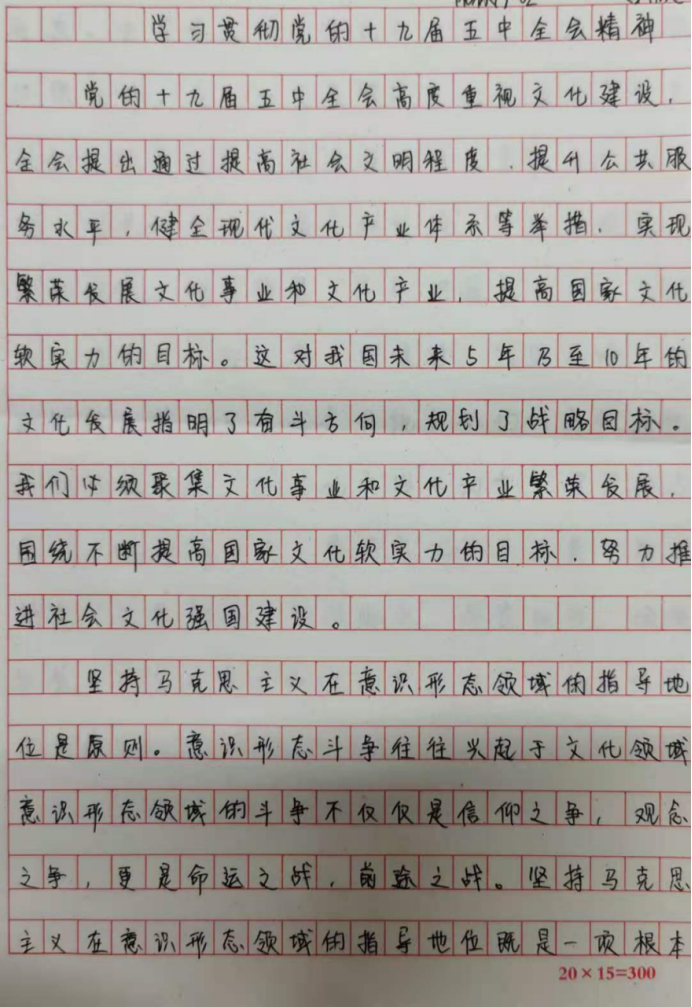 学习贯彻党的十九届五中全会精神
党的十九届五中全会高度重视文化建设,
全会提出通过提高社会文明程度、提升公共服
务水平,健全现代文化产业体系等举措,实现
繁荣发展文化事业和文化产业,提高国家文化
软实力的目标。这对我国未来5年乃至10年的
文化发展指明了奋斗方向,规划了战略目标。
我们必须聚集文化事业和文化产业繁荣发展,
围绕不断提高国家文化软实力的目标,努力推
进社会文化强国建设。
坚持马克思主义在意识形态领域的指导地
位是原则。意识形态斗争往往兴起于文化领域
意识形态领域的斗争不仅仅是信仰之争,观念
之争,更是命运之战,前途之战。坚持马克思
主义在意识形态领域的指导地位既是一项根本
20×15=300